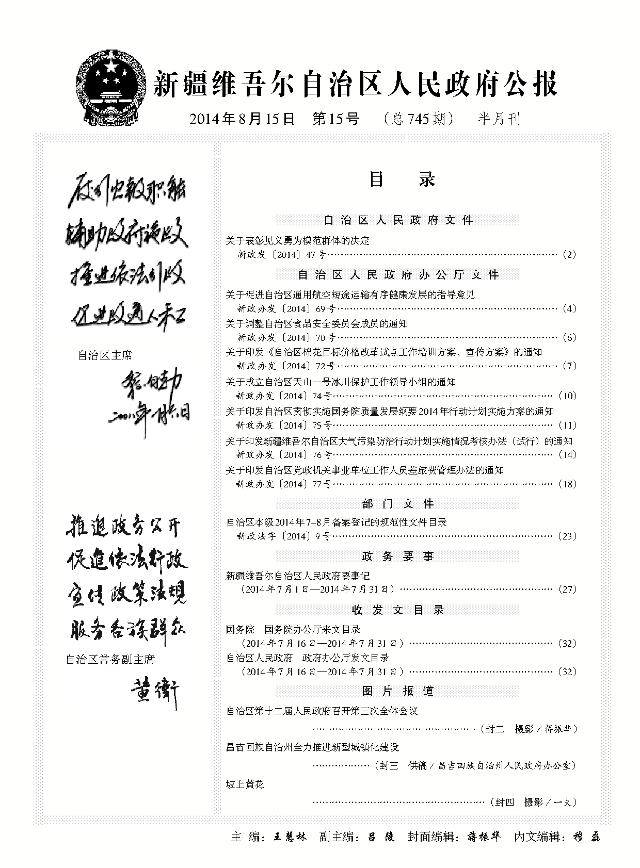 新疆维吾尔自治区人民政府公报
2014年8月15日 第15号 （总745期） 半月刊
辅助政府施政
推进依法行政
促进政通人和
自治区主席
推进政务公开
促进依法行政
宣传政策法规
服务各族群众
自治区常务副主席
黄卫
目 录
自治区人民政府文件
关于表彰见义勇为模范群体的决定
新政发〔2014〕47号……（2）
自治区人民政府办公厅文件
关于促进自治区通用航空短途运输有序健康发展的指导意见
新政办发〔2014〕69号……（4）
关于调整自治区食品安全委员会成员的通知
新政办发〔2014〕70号……（6）
关于印发《自治区棉花目标价格改革试点工作培训方案、宣传方案》的通知
新政办发〔2014〕72号……（7）
关于成立自治区天山一号冰川保护工作领导小组的通知
新政办发〔2014〕74号……（10）
关于印发自治区贯彻实施国务院质量发展纲要2014年行动计划实施方案的通知
新政办发〔2014〕75号……（11）
关于印发新疆维吾尔自治区大气污染防治行动计划实施情况考核办法（试行）的通知
新政办发〔2014〕76号……（14）
关于印发自治区党政机关事业单位工作人员差旅费管理办法的通知
新政办发〔2014〕77号……（18）
部门文件
自治区本级2014年7-8月备案登记的规范性文件目录
新政法字〔2014〕9号……（23）
政务要事
新疆维吾尔自治区人民政府要事记
（2014年7月1日—2014年7月31日）……（27）
收发文目录
国务院 国务院办公厅来文目录
（2014年7月16日—2014年7月31日）……（32）
自治区人民政府 政府办公厅发文目录
（2014年7月16日—2014年7月31日）……（32）
图片报道
自治区第十二届人民政府召开第三次全体会议
……（封二 摄影／蒋振华）
昌吉回族自治州全力推进新型城镇化建设
……（封三 供稿／昌吉回族自治州人民政府办公室）
坡上黄花
……（封四 摄影／一文）
主 编：王慧林 副主编：吕 陵 封面编辑：蒋振华 内文编辑：穆 磊